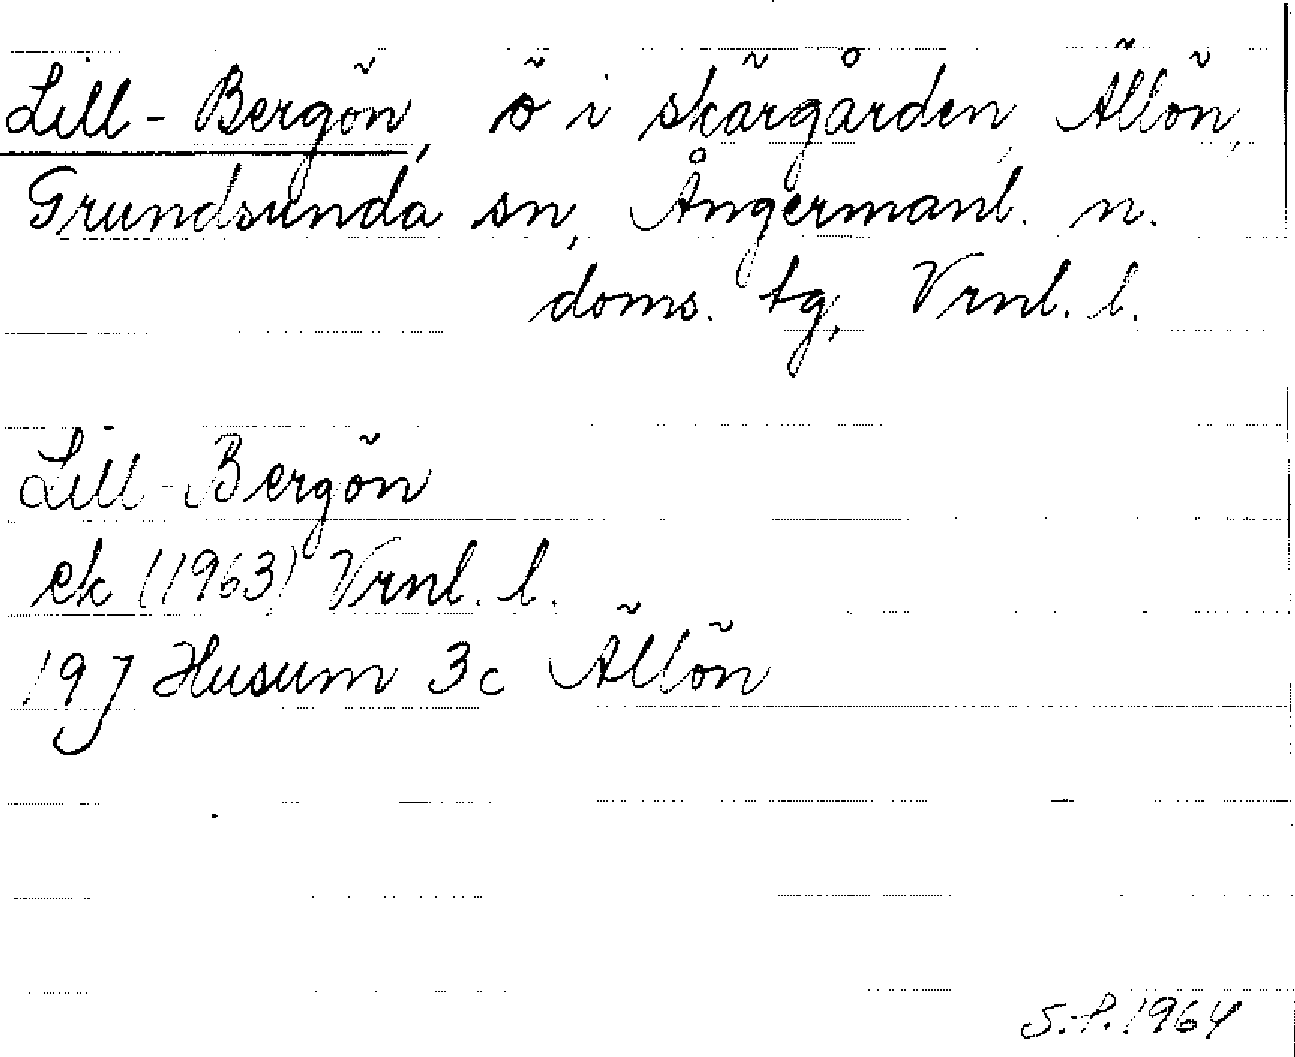 Lill-Bergön, ö i skärgården, Ällön,
Grundsunda sn, Ångermanl. n.
doms. tg, Vrnl. l.
Lill-Bergön
ek (1963) Vrnl. l.
19J Husum 3c Ällön
S.P. 1964